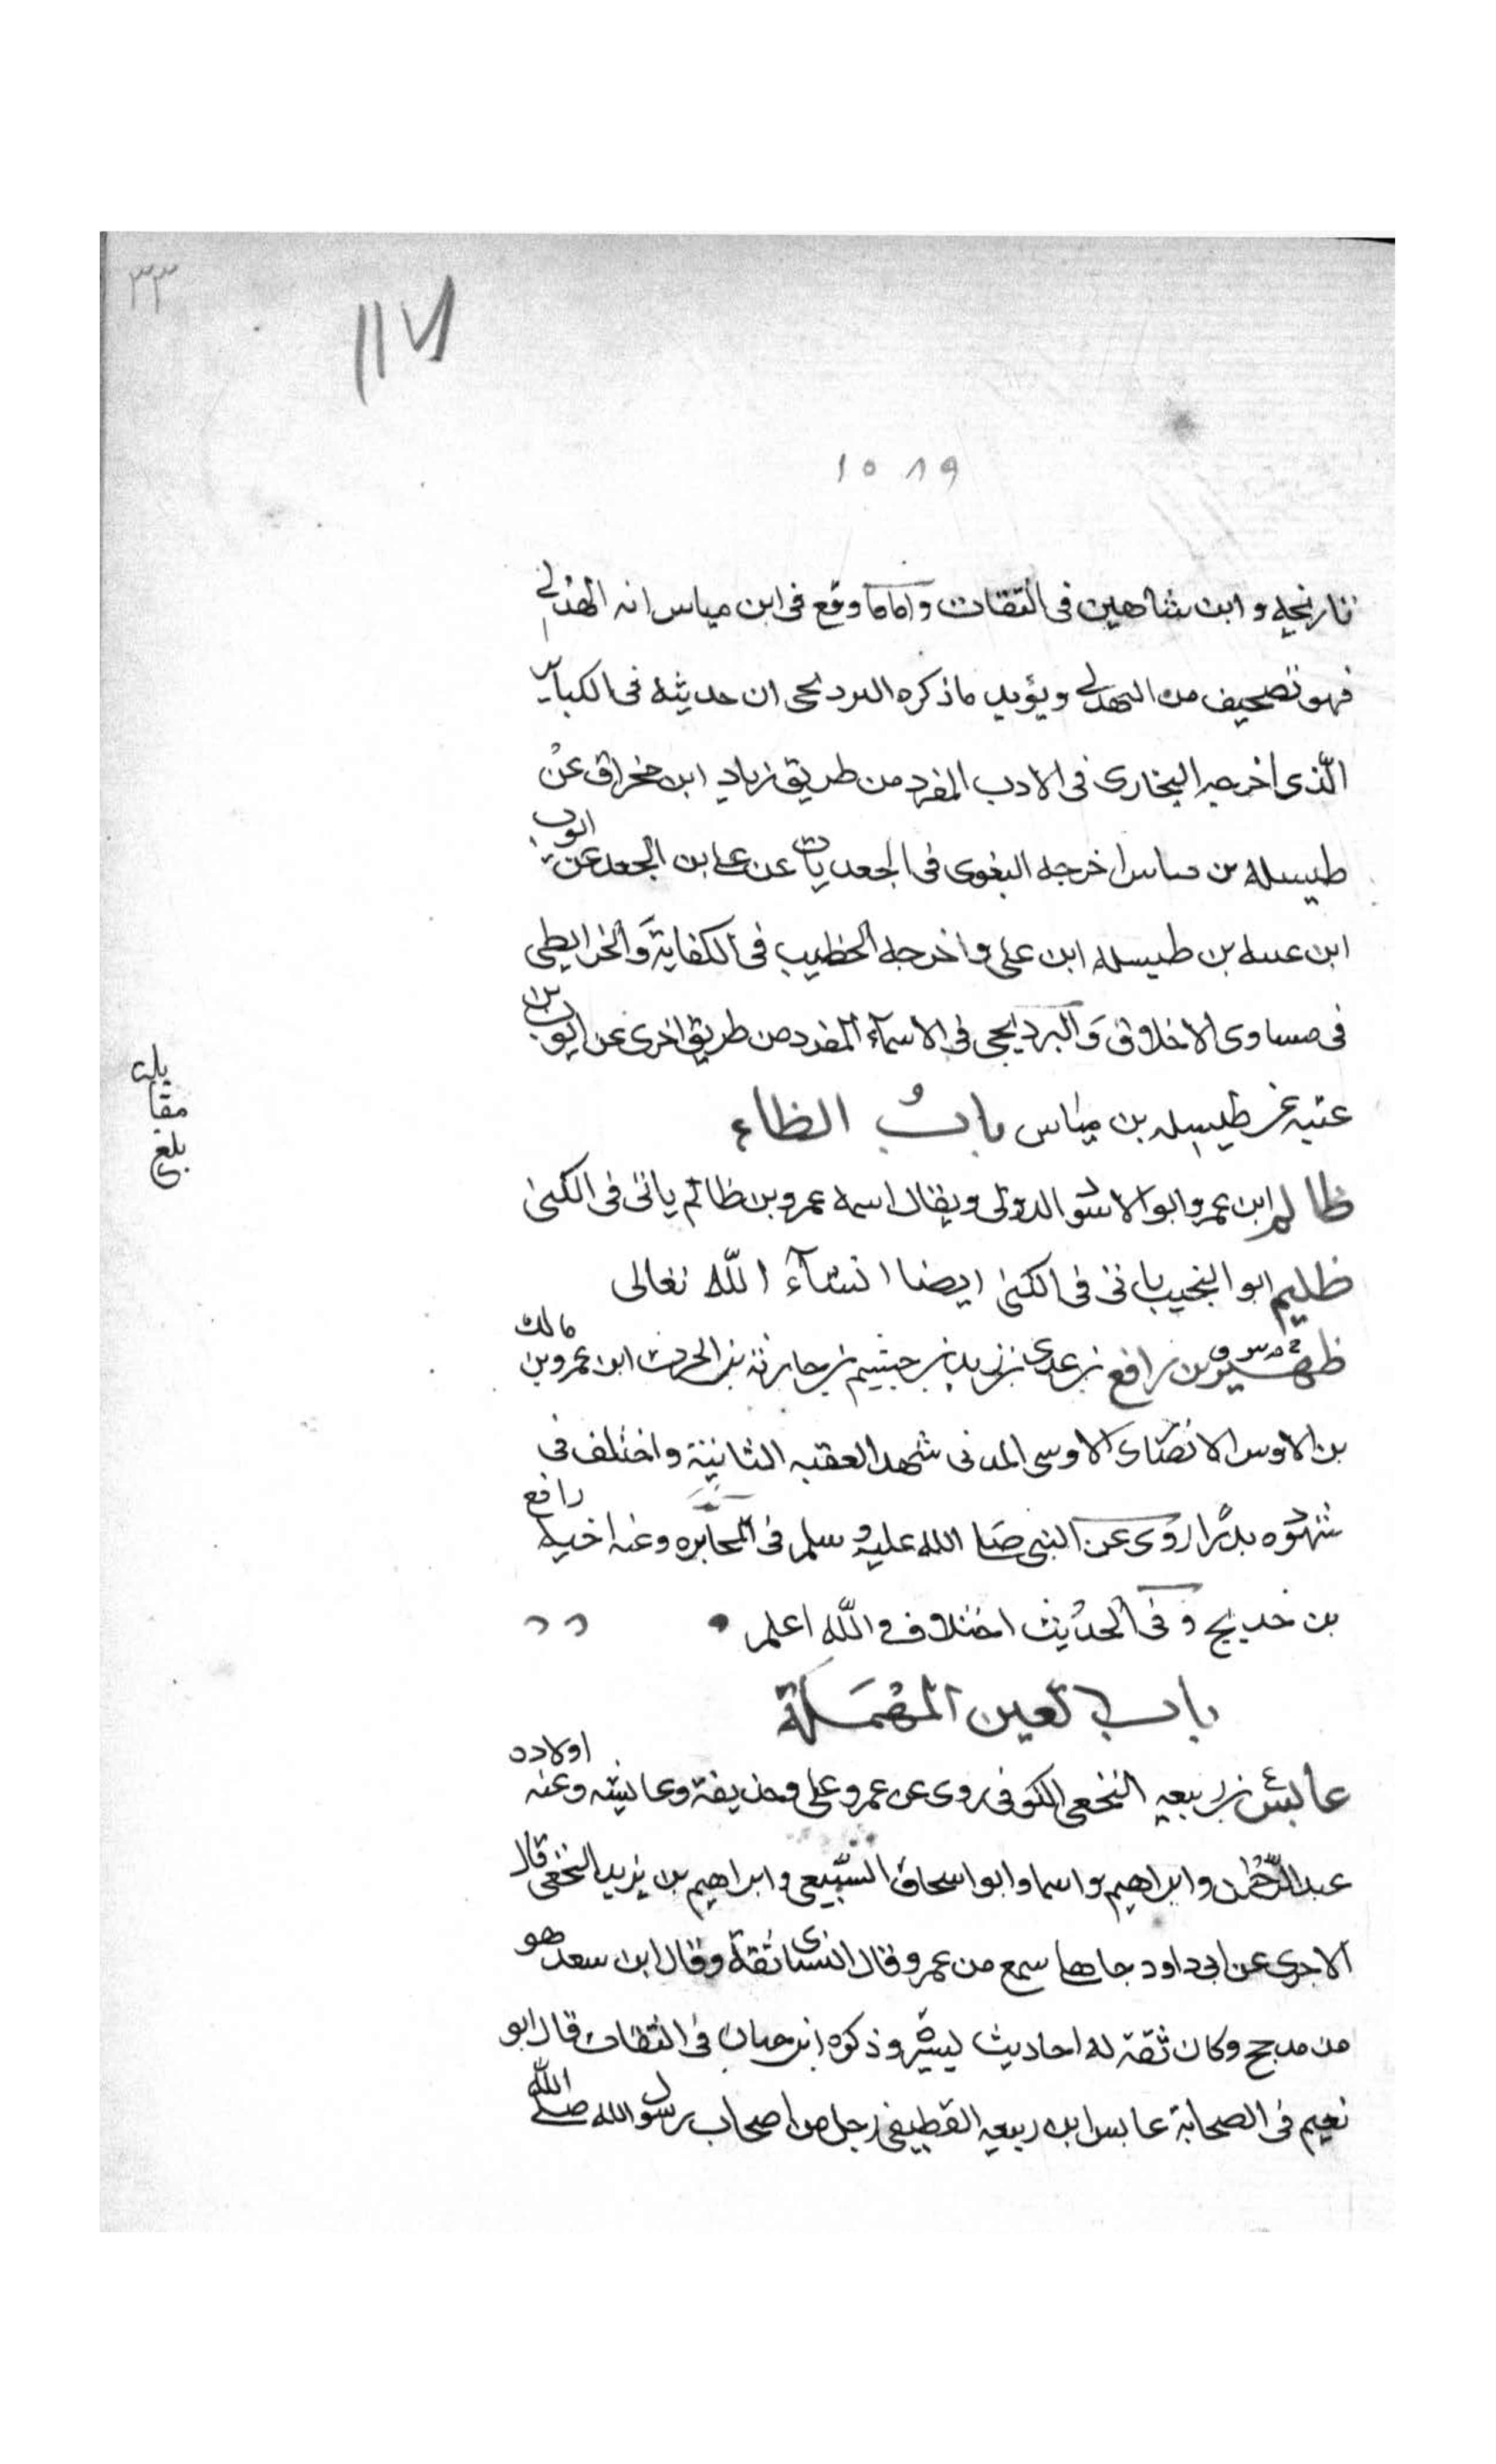 ٣٣
١١٧
١٥٨٩
تاريخه وابن شاهين فى الثقات واما ما وقع فى ابن مياس انه الهذلى
فهو تصحيف من البهدلى ويؤيد ما ذكره البرديجى ان حديثه فى الكبائر
الّذى اخرجه البخارى فى الادب المفرد من طريق زياد ابن مخراق عن
طيسله بن مياس اخرجه البغوى فى الجعديات عن على ابن الجعد عن ايوب
ابن عتبه بن طيسله ابن على واخرجه الخطيب فى الكفاية والخرايطى
فى مساوى الاخلاق والبرديجى فى الاسماء المفرد من طريق اخرى عن ايوب بن
عتبه عن طيسله بن مياس باب الظاء
ظالم ابن عمرو ابو الاسود الدولى ويقال اسمه عمرو بن ظالم ياتى فى الكنى
ظليم ابو النجيب ياتى فى الكنى ايضا انشآء اللّه تعالى
ظهير بن رافع بن عدى بن زيد بن جشيم بن حارثة بن الحرث ابن عمرو بن مالك
بن الاوس الانصارى الاوسى المدنى شهد العقبه الثانية واختلف فى
شهوده بدرا روى عن النبى صلى الله عليه وسلم فى المخابره وعنه اخيه رافع
بن خديج وفى الحديث اختلاف واللّه اعلم
باب العين المهملة
عابس بن ربيعه النخعى الكوفى روى عن عمر وعلى وحذيفة وعائشه وعنه اولاده
عبد الرحمن وابراهيم واسما وابو اسحاق السبيعى وابراهيم بن يزيد النخعى قال
الاجرى عن ابى داود جاهلى سمع من عمر وقال النسائى ثقة وقال ابن سعد هو
من مدحج وكان ثقة له احاديث يسيرة وذكره ابن حبان فى الثقات قال ابو
نعيم فى الصحابة عابس ابن ربيعه القطيفى رجل من اصحاب رسول الله صلى الله
بلغ مقابلة